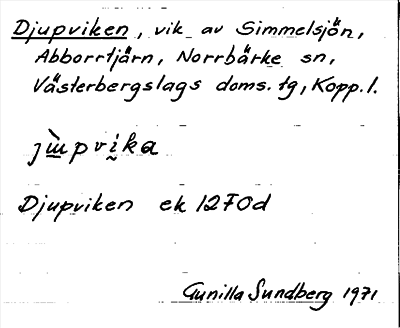 Djupviken, vik av Simmelsjön,
Abborrtjärn, Norrbärke sn,
Västerbergslags doms. tg, Kopp. l.
jɯ̀pvika
Djupviken ek 12F0d
Gunilla Sundberg 1971